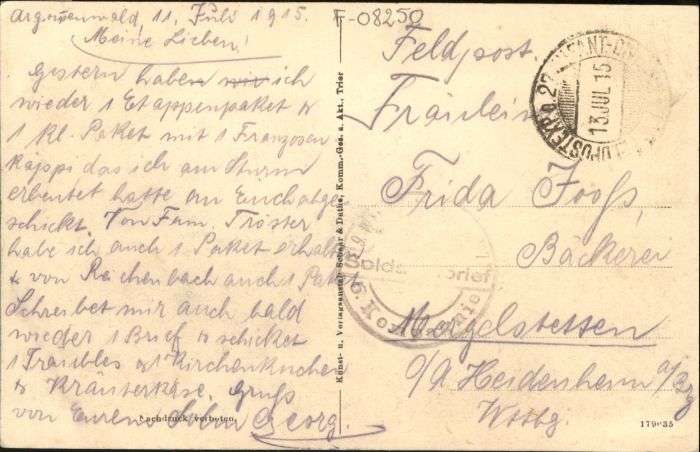 Argonnenwald, 11. Juli 1915.
Meine Lieben!
Gestern haben wir ich
wieder 1 Etappenpaket u
1 kl. Paket mit 1 Franzosen
kappi das ich am Sturm
erbeutet hatte an Euch abge-
schickt. Von Fam. Tröster
habe ich auch 1 Paket erhalten
u von Reichenbach auch 1 Paket
Schreibet mir auch bald
wieder 1 Brief u schicket
1 Träubles u 1 Kirchenkuchen
u Kräuterkäse. Gruß
von Eurem Georg.
Nachdruck verboten.
Kunst- u. Verlagsanstalt Schaar & Dathe, Komm.-Ges. a. Akt., Trier
F-08250
Feldpost.
13 JUL 15
Fräulein
Frida Jooß,
Bäckerei
Soldatenbrief
Mergelstetten
O/A Heidenheim a/Brz
Wttbg.
179635